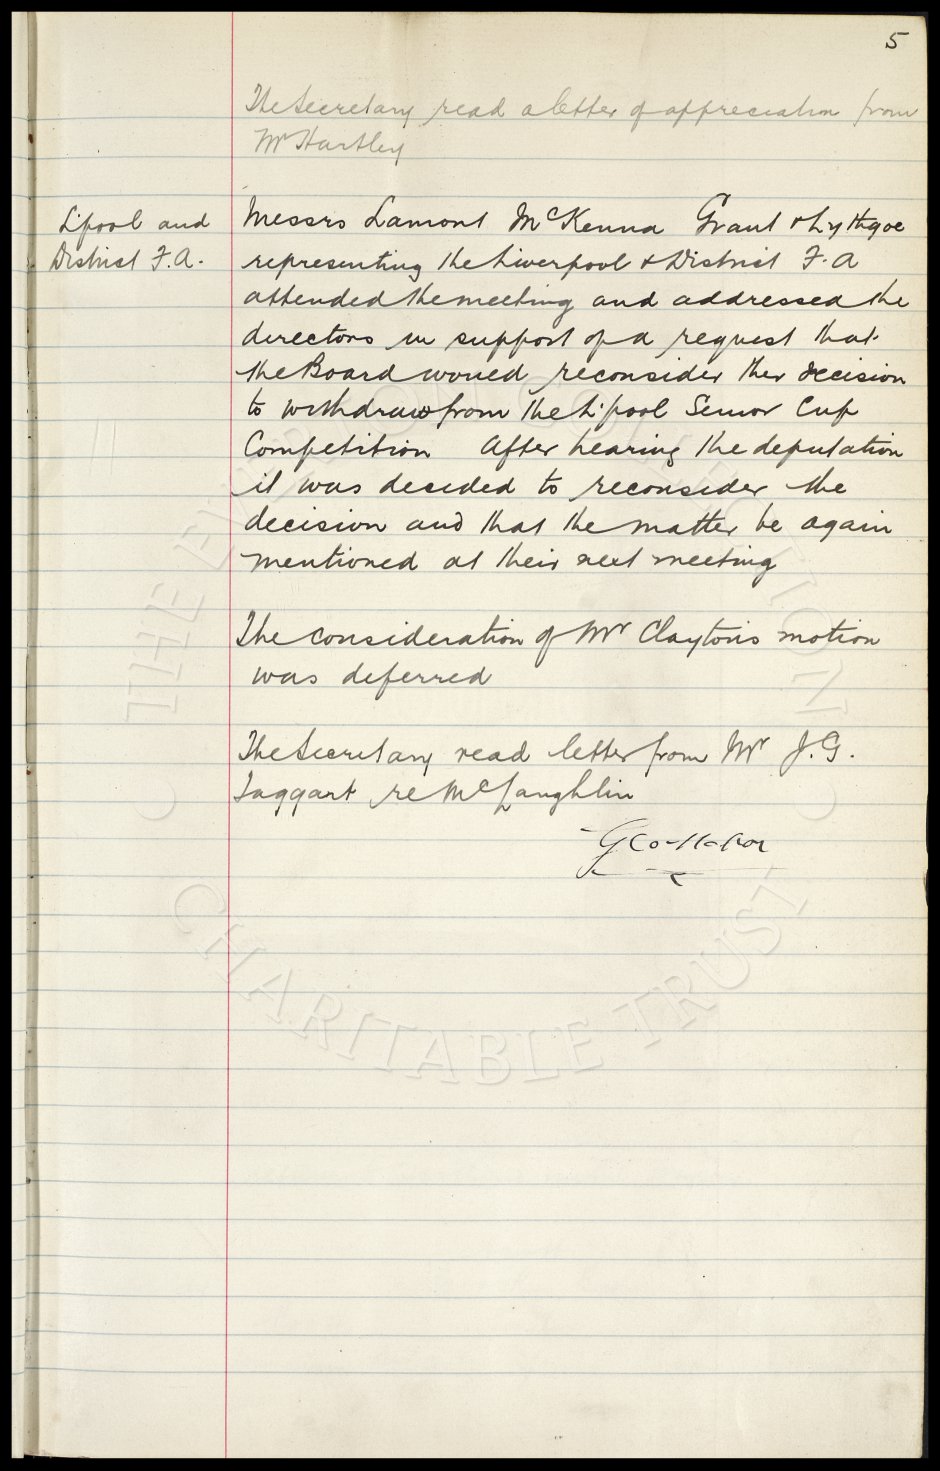 5
The Secretary read a letter of appreciation from
Mr Hartley
L'pool and
District F.A.
Messrs Lamont McKenna Grant & Lythgoe
representing the Liverpool & District F.A
attended the meeting and addressed the
directors in support of a request that
the Board would reconsider their decision
to withdraw from the L'pool Senior Cup
Competition After hearing the deputation
it was decided to reconsider the
decision and that the matter be again
mentioned at their next meeting
The consideration of Mr Clayton's motion
was deferred
The Secretary read letter from Mr J.G.
Taggart re McLaughlin
Geo
THE EVERTON COLLECTION
CHARITABLE TRUST